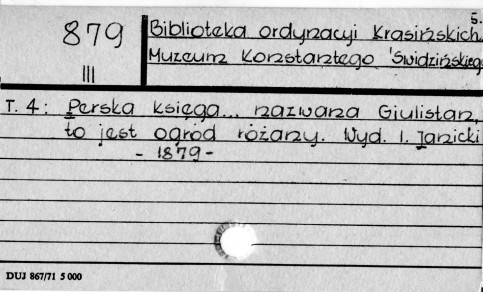 5.
879
III
Biblioteka ordynacyi Krasińskich
Muzeum Konstantego Świdzińskiego
T. 4: Perska księga... nazwana Giulistan,
to jest ogród różany. Wyd. I. Janicki
- 1879 -
DUJ 867/71 5 000